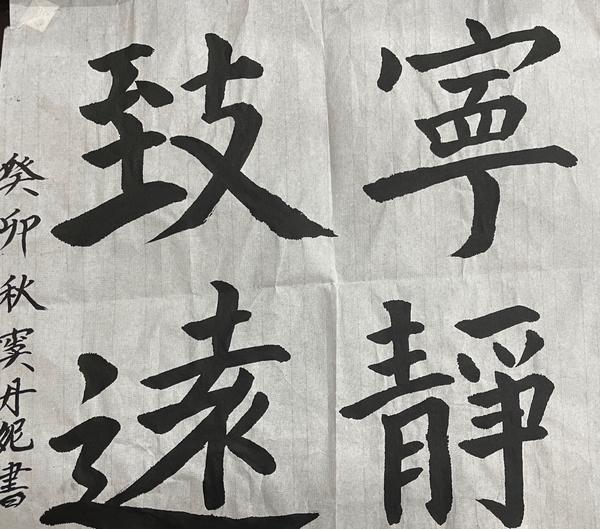 寧靜
致遠
癸卯秋丹妮書